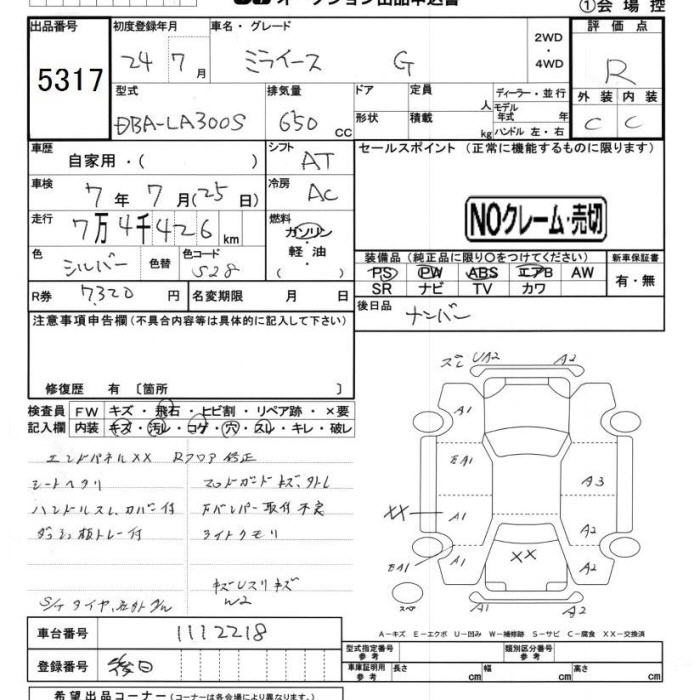 オークション出品申込書
①会場控
出品番号 初度登録年月 車名・グレード 2WD・4WD 評価点
5317 24年7月 ミライース G R
型式 排気量 ドア 定員 人 ディーラー・並行 外装 内装
DBA-LA300S 650 CC 形状 積載 kg モデル年式 年 ハンドル 左・右 C C
車歴 自家用・( ) シフト AT セールスポイント (正常に機能するものに限ります)
車検 7年7月(25日) 冷房 AC
NOクレーム・売切
走行 7万4千426km 燃料 ガソリン 軽油 ( ・ )
色 シルバー 色替 色コード S28
装備品 (純正品に限り○をつけてください) 新車保証書
PS PW ABS エアB AW 有・無
SR ナビ TV カワ
R券 7320円 名変期限 月 日 後日品 ナンバー
注意事項申告欄(不具合内容等は具体的に記入して下さい)
修復歴 有 〔箇所 〕
検査員 FW キズ・飛石・ヒビ割・リペア跡・×要
記入欄 内装 キズ・汚レ・コゲ・穴・スレ・キレ・破レ
エンドパネルXX Rフロア修正
シートヘタリ
ハンドルスレ、カバー付 Fバンパー取付不良
ライトクモリ
W2
UA2 A2
A1
EA1 A3
XX A1 A2
XX
EA1 A1 A2
A2 A2
スペア
A－キズ E－エクボ U－凹み W－補修跡 S－サビ C－腐食 XX－交換済
車台番号 1112218
型式指定番号 類別区分番号
登録番号 後日
車庫証明用参考 長さ cm 幅 cm 高さ cm
希望出品コーナー(コーナーは各会場により異なります。)